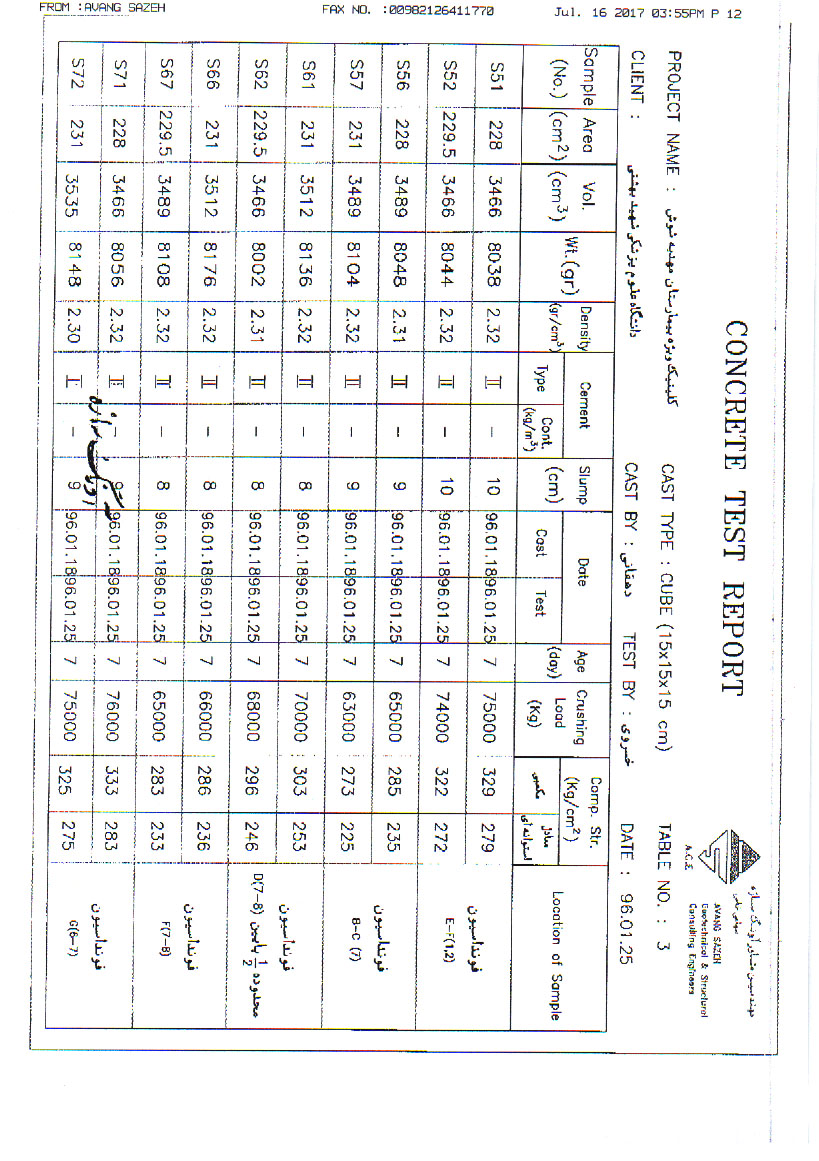 FROM :AVANG SAZEH FAX NO. :00982126411770 Jul. 16 2017 03:55PM P 12
CONCRETE TEST REPORT
مهندسین مشاور آونگ سازه
سهامی خاص
AVANG SAZEH
Geotechnical & Structural
Consulting Engineers
A.G.E
PROJECT NAME : کلینیک ویژه بیمارستان مهدیه شوش CAST TYPE : CUBE (15x15x15 cm) TABLE NO. : 3
CLIENT : دانشگاه علوم پزشکی شهید بهشتی CAST BY : دهقانی TEST BY : خسروی DATE : 96.01.25
Sample (No.) Area (cm2) Vol. (cm3) Wt.(gr) Density (gr/cm3) Cement Slump (cm) Date Age (day) Crushing Load (Kg) Comp. Str. (Kg/cm2) Location of Sample
Type Cont. (kg/m3) Cast Test مکعبی معادل استوانه ای
S51 228 3466 8038 2.32 II - 10 96.01.18 96.01.25 7 75000 329 279 فونداسیون
S52 229.5 3466 8044 2.32 II - 10 96.01.18 96.01.25 7 74000 322 272 E-F(1,2)
S56 228 3489 8048 2.31 II - 9 96.01.18 96.01.25 7 65000 285 235 فونداسیون
S57 231 3489 8104 2.32 II - 9 96.01.18 96.01.25 7 63000 273 225 B-C (7)
S61 231 3512 8136 2.32 II - 8 96.01.18 96.01.25 7 70000 303 253 فونداسیون
S62 229.5 3466 8002 2.31 II - 8 96.01.18 96.01.25 7 68000 296 246 محدوده 1/2 پایین D(7-8)
S66 231 3512 8176 2.32 II - 8 96.01.18 96.01.25 7 66000 286 236 فونداسیون
S67 229.5 3489 8108 2.32 II - 8 96.01.18 96.01.25 7 65000 283 233 F(7-8)
S71 228 3466 8056 2.32 II - 9 96.01.18 96.01.25 7 76000 333 283 فونداسیون
S72 231 3535 8148 2.30 I - 9 96.01.18 96.01.25 7 75000 325 275 G(6-7)